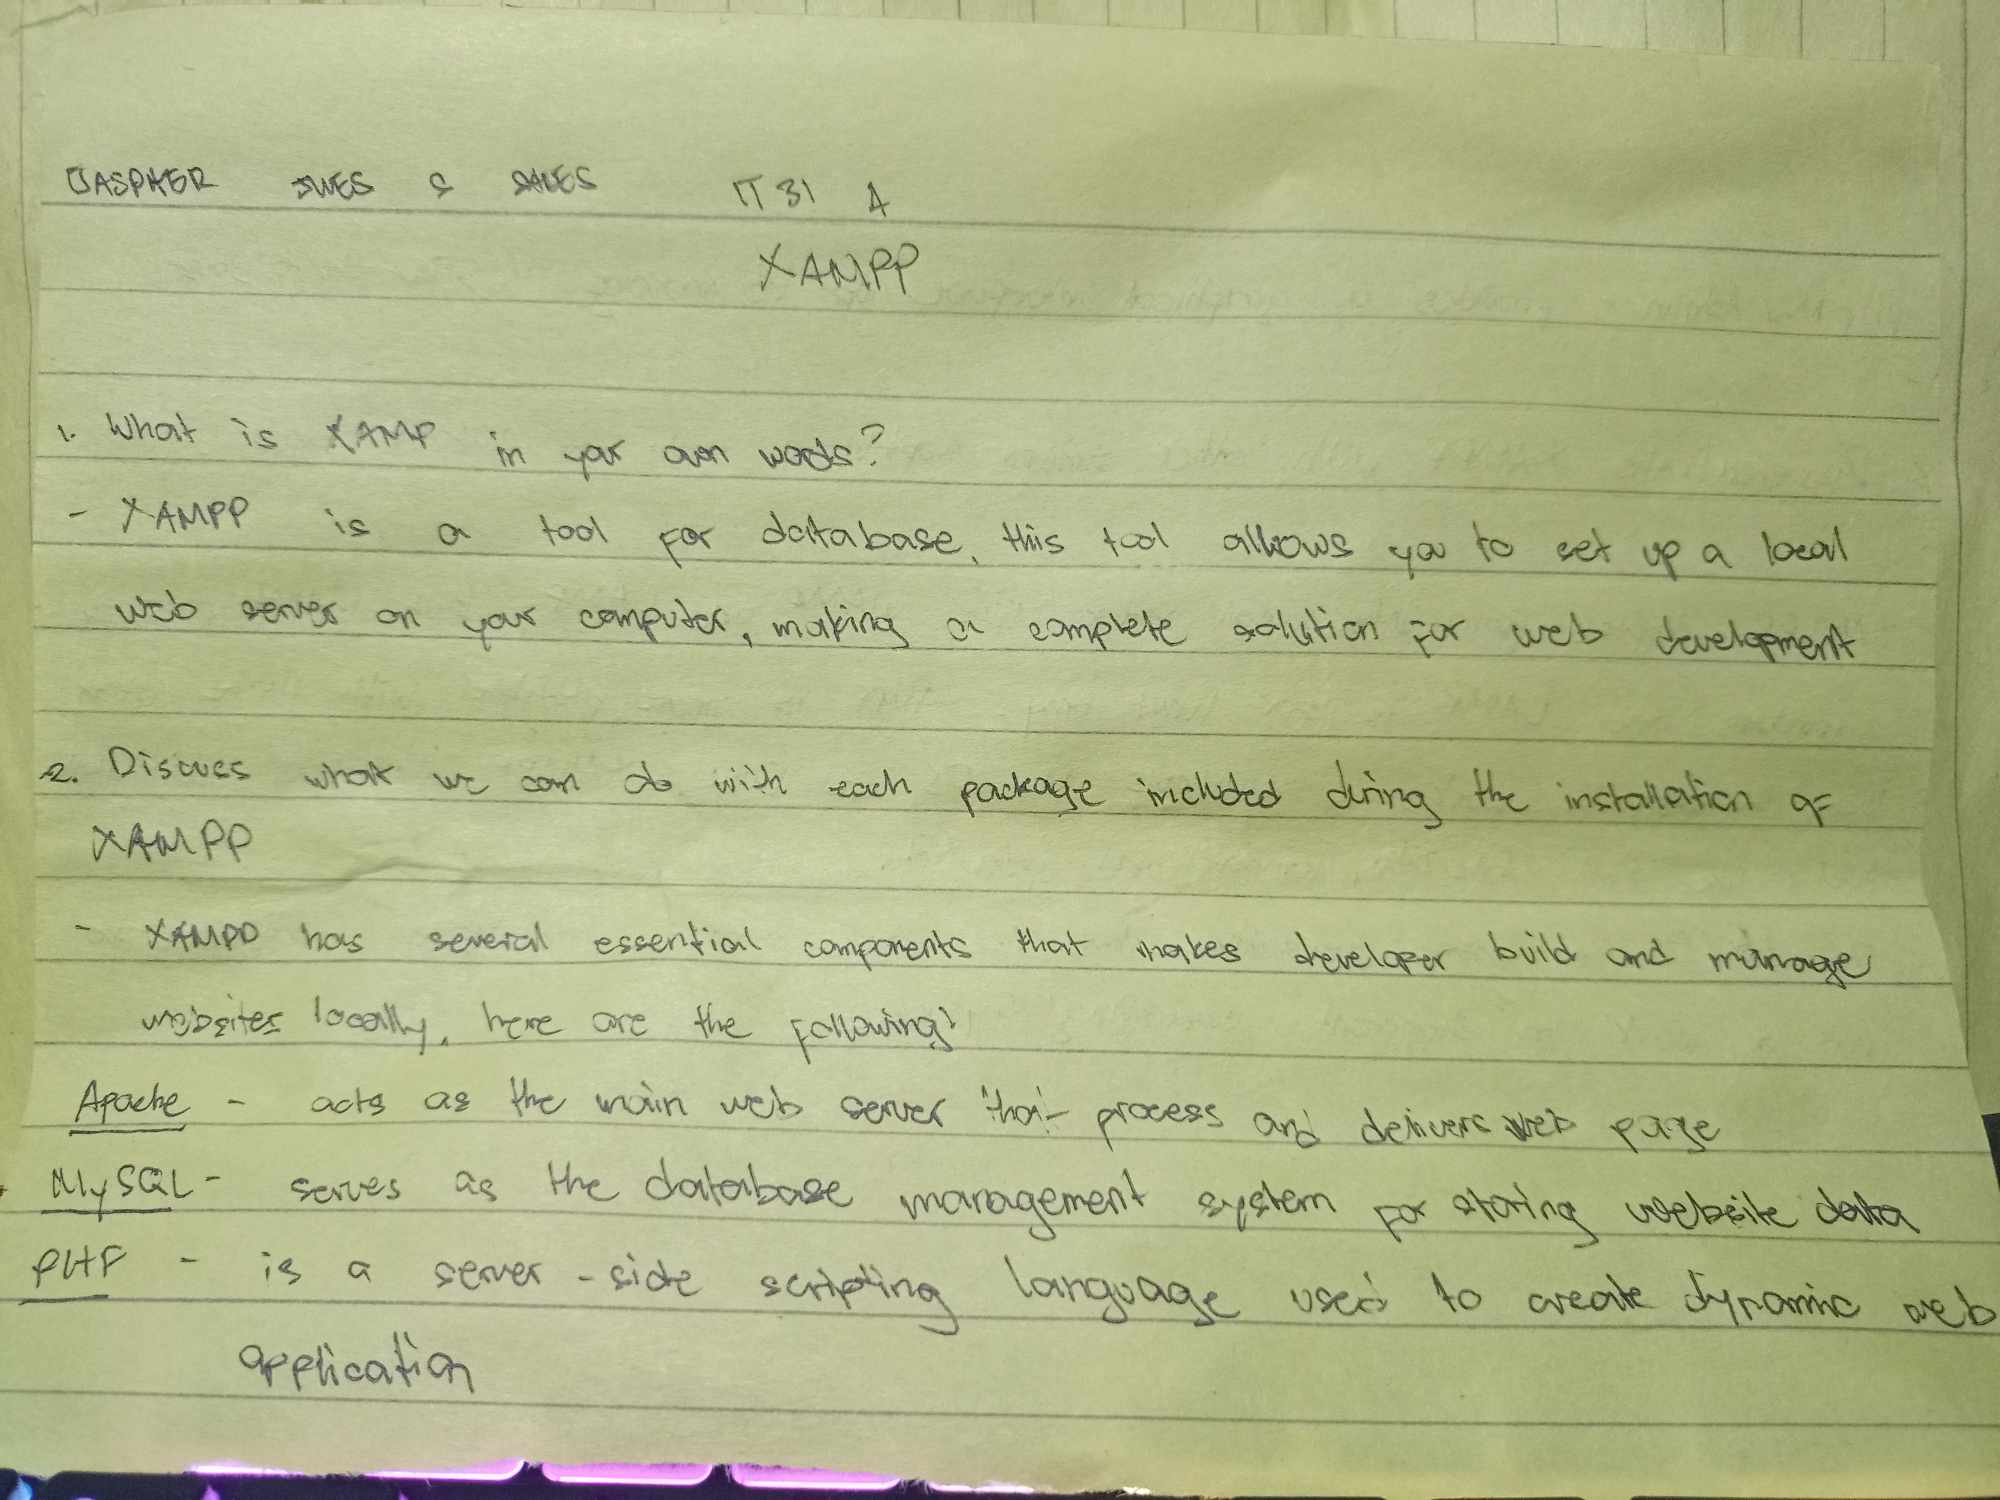 JASPHER S IT 31 A
XAMPP
1. What is XAMP in your own words?
- XAMPP is a tool for database, this tool allows you to set up a local
web server on your computer, making a complete solution for web development
2. Discuss what we can do with each package included during the installation of
XAMPP
- XAMPP has several essential components that makes developer build and manage
websites locally, here are the following:
Apache - acts as the main web server that process and delivers web page
MySQL - serves as the database management system for storing website data
PHP - is a server-side scripting language used to create dynamic web
application